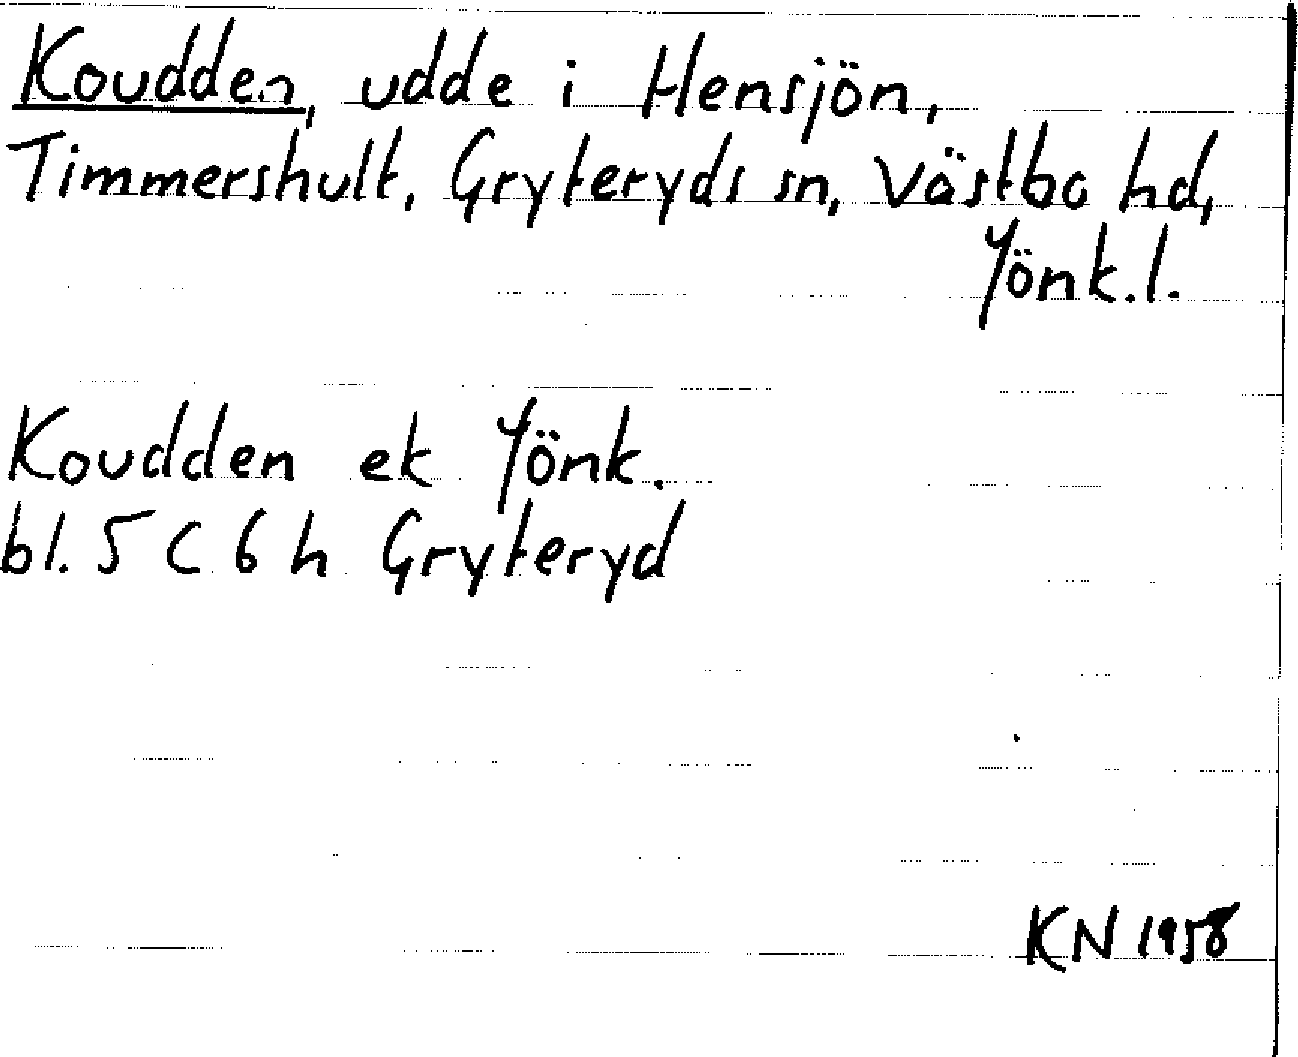 Koudden, udde i Hensjön,
Timmershult, Gryteryds sn, Västbo hd,
Jönk.l.
Koudden ek Jönk.
bl. 5 C 6 h Gryteryd
KN 1958